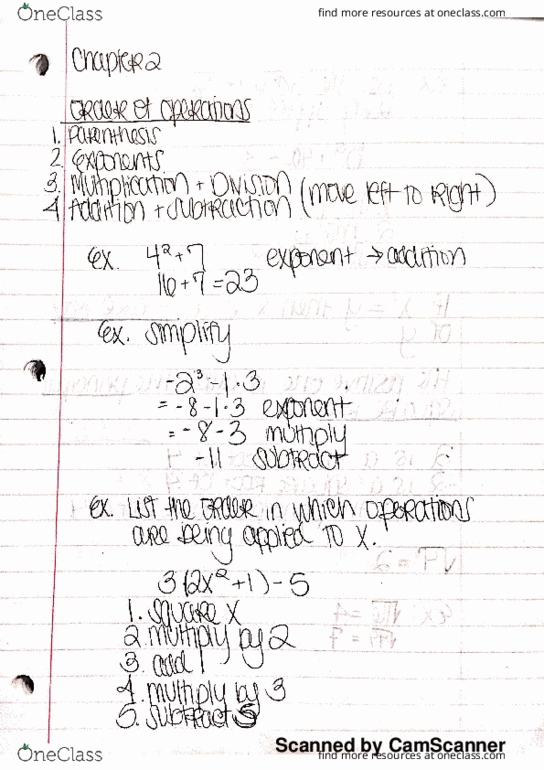 OneClass
find more resources at oneclass.com
Chapter 2
Order of operations
1. Parenthesis
2. Exponents
3. Multiplication + Division (move left to right)
4 Addition + Subtraction
Ex. 4² + 7 exponent → addition
16 + 7 = 23
Ex. simplify
-2³ - 1 · 3
= -8 - 1 · 3 exponent
= -8 - 3 multiply
-11 subtract
Ex. List the order in which operations
are being applied to x.
3(2x² + 1) - 5
1. square x
2. multiply by 2
3. add 1
4. multiply by 3
5. subtract 5
Scanned by CamScanner
OneClass
find more resources at oneclass.com